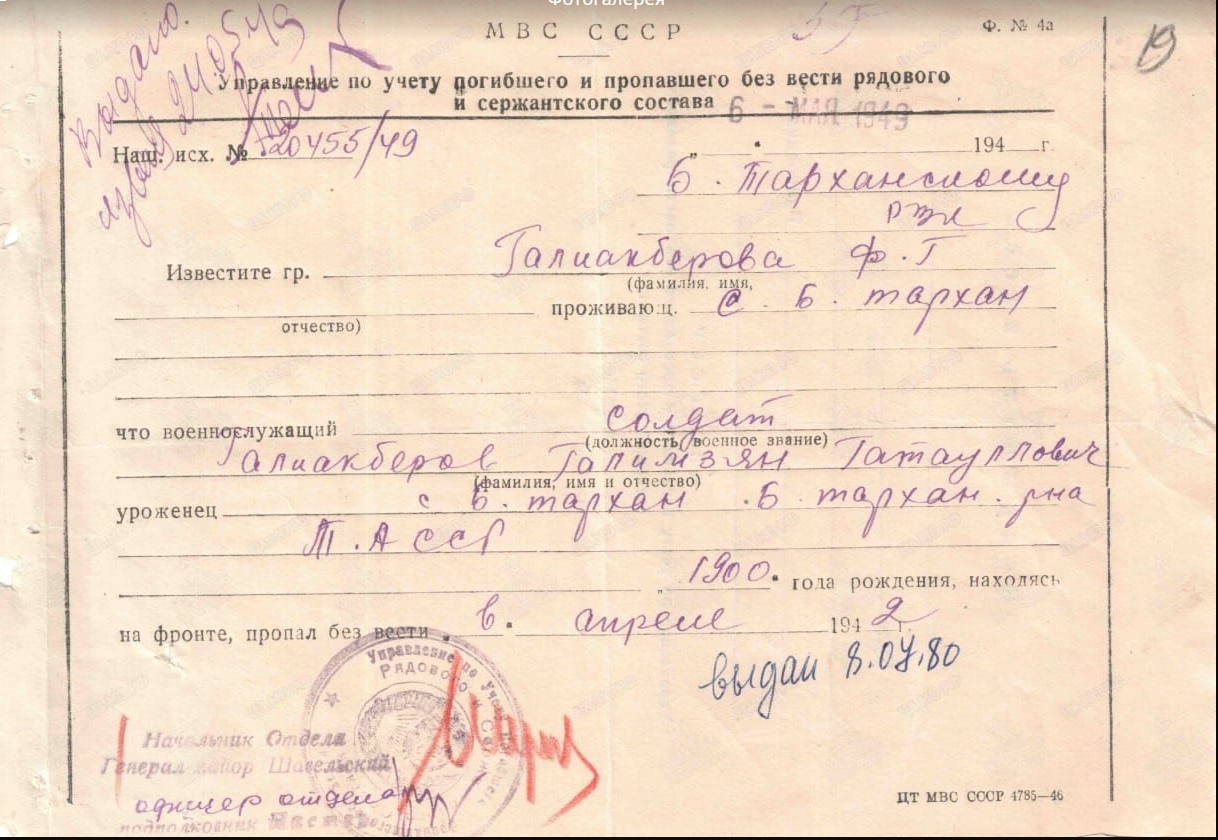 Фотогалерея
МВС СССР
Ф. № 4а
19
Выдано
извещ 24 05 49
Управление по учету погибшего и пропавшего без вести рядового
и сержантского состава
6 - МАЯ 1949
Наш. исх. № 20455/49
„ " 194 г.
Б. Тарханскому
рвк
Известите гр. Галиакберова Ф. Г
(фамилия, имя,
проживающ. с. Б. тархан
отчество)
что военнослужащий солдат
(должность, военное звание)
Галиакберов Галимзян Гатауллович
(фамилия, имя и отчество)
уроженец с Б. тархан . Б. тархан. рна
Т. А ССР
1900. года рождения, находясь
на фронте, пропал без вести в. апреле 1942 г.
выдан 8.04.80
Управление по Учету
Рядового и
Начальник Отдела
Генерал-майор Шавельский
офицер отдела
подполковник
ЦТ МВС СССР 4785—46